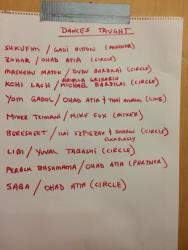 DANCES TAUGHT
SHKUFIM / GADI BITTON (PARTNER)
ZOHAR / OHAD ATIA (CIRCLE)
MASHEHU MATOK / DUDU BARZILAI (CIRCLE)
KOHI LACH / MICHAEL BARZILAI (CIRCLE)
YOM GADOL / OHAD ATIA + (LINE)
MIXER TEIMANI / MIKE FOX (MIXER)
BERESHEET / ILAI SZPIEZAK + (CIRCLE)
LIBI / YUVAL TABASHI (CIRCLE)
PEROCH BASHMAMA / OHAD ATIA (PARTNER)
SABA / OHAD ATIA (CIRCLE)